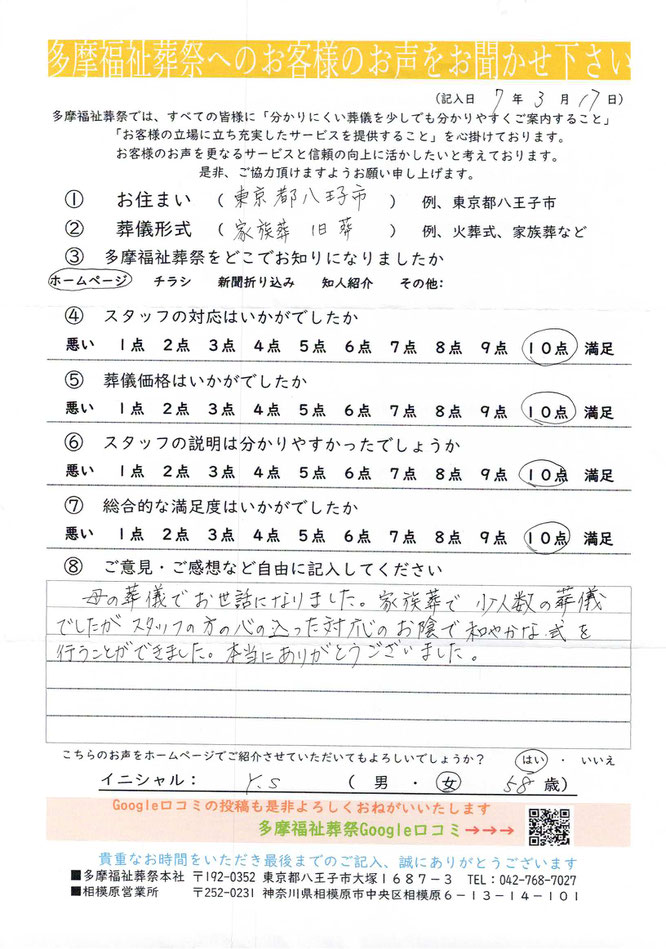 多摩福祉葬祭へのお客様のお声をお聞かせ下さい
(記入日 7 年 3 月 17 日)
多摩福祉葬祭では、すべての皆様に「分かりにくい葬儀を少しでも分かりやすくご案内すること」
「お客様の立場に立ち充実したサービスを提供すること」を心掛けております。
お客様のお声を更なるサービスと信頼の向上に活かしたいと考えております。
是非、ご協力頂けますようお願い申し上げます。
① お住まい （ 東京都八王子市 ） 例、東京都八王子市
② 葬儀形式 （ 家族葬 旧葬 ） 例、火葬式、家族葬など
③ 多摩福祉葬祭をどこでお知りになりましたか
ホームページ チラシ 新聞折り込み 知人紹介 その他:
④ スタッフの対応はいかがでしたか
悪い 1点 2点 3点 4点 5点 6点 7点 8点 9点 10点 満足
⑤ 葬儀価格はいかがでしたか
悪い 1点 2点 3点 4点 5点 6点 7点 8点 9点 10点 満足
⑥ スタッフの説明は分かりやすかったでしょうか
悪い 1点 2点 3点 4点 5点 6点 7点 8点 9点 10点 満足
⑦ 総合的な満足度はいかがでしたか
悪い 1点 2点 3点 4点 5点 6点 7点 8点 9点 10点 満足
⑧ ご意見・ご感想など自由に記入してください
母の葬儀でお世話になりました。家族葬で少人数の葬儀
でしたがスタッフの方の心の込った対応のお陰で和やかな式を
行うことができました。本当にありがとうございました。
こちらのお声をホームページでご紹介させていただいてもよろしいでしょうか？ はい ・ いいえ
イニシャル： Y.S （ 男 ・ 女 58 歳）
Google口コミの投稿も是非よろしくおねがいいたします
多摩福祉葬祭Google口コミ→→→
貴重なお時間をいただき最後までのご記入、誠にありがとうございます
■多摩福祉葬祭本社 〒192-0352 東京都八王子市大塚1687-3 TEL：042-768-7027
■相模原営業所 〒252-0231 神奈川県相模原市中央区相模原6-13-14-101